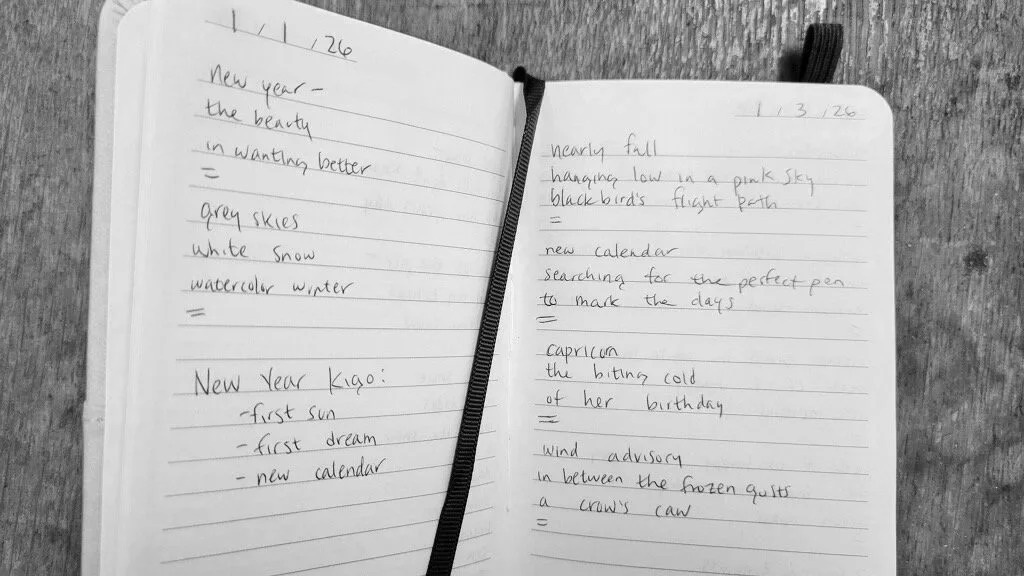 1, 1, 26
new year –
the beauty
in wanting better
=
grey skies
white snow
watercolor winter
=
New Year Kigo:
- first sun
- first dream
- new calendar
1, 3, 26
nearly full
hanging low in a pink sky
blackbird's flight path
=
new calendar
searching for the perfect pen
to mark the days
=
capricorn
the biting cold
of her birthday
=
wind advisory
in between the frozen gusts
a crow's caw
=